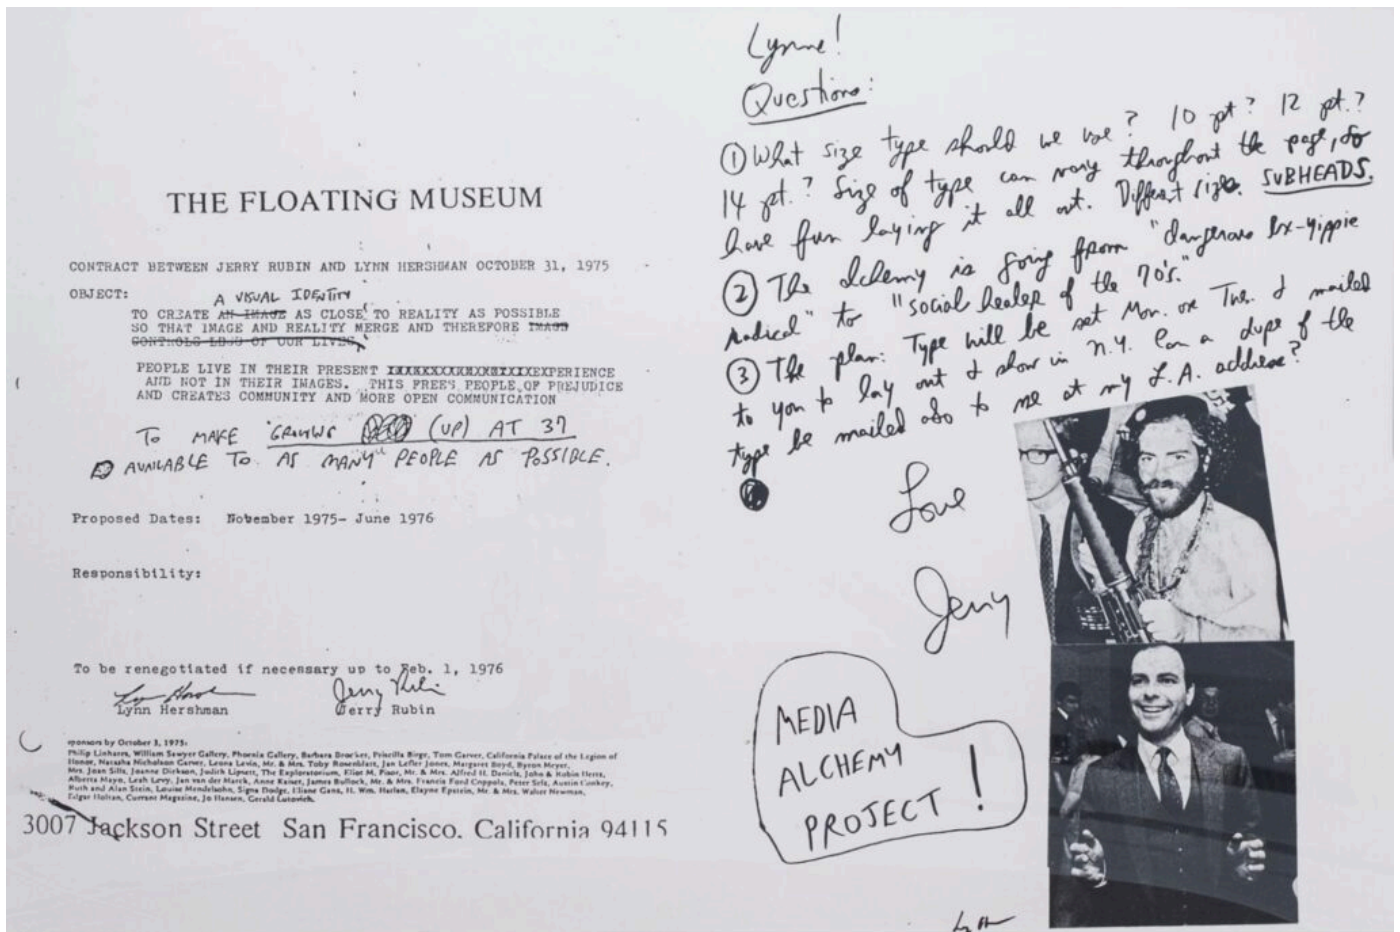 THE FLOATING MUSEUM
CONTRACT BETWEEN JERRY RUBIN AND LYNN HERSHMAN OCTOBER 31, 1975
OBJECT:
A VISUAL IDENTITY
TO CREATE AN IMAGE AS CLOSE TO REALITY AS POSSIBLE
SO THAT IMAGE AND REALITY MERGE AND THEREFORE IMAGE
CONTROLS LESS OF OUR LIVES,
PEOPLE LIVE IN THEIR PRESENT EXPERIENCE
AND NOT IN THEIR IMAGES. THIS FREES PEOPLE OF PREJUDICE
AND CREATES COMMUNITY AND MORE OPEN COMMUNICATION
TO MAKE "GROWING (UP) AT 37
AVAILABLE TO AS MANY PEOPLE AS POSSIBLE.
Proposed Dates: November 1975- June 1976
Responsibility:
To be renegotiated if necessary up to Feb. 1, 1976
Lynn Hershman Jerry Rubin
Lynn Hershman Jerry Rubin
sponsors by October 3, 1975:
Philip Linhares, William Sawyer Gallery, Phoenix Gallery, Barbara Boucker, Priscilla Birge, Tom Garver, California Palace of the Legion of
Honor, Natasha Nicholson Garver, Leona Levin, Mr. & Mrs. Toby Rosenblatt, Jan Lefler Jones, Margaret Boyd, Byron Meyer,
Mrs. Joan Sills, Joanne Dickson, Judith Lipsett, The Exploratorium, Eliot M. Finor, Mr. & Mrs. Alfred H. Daniels, John & Robin Hertz,
Alberta Mayo, Leah Levy, Jan van der Marck, Anne Kaiser, James Bullock, Mr. & Mrs. Francis Ford Coppola, Peter Selz, Austin Conkey,
Ruth and Alan Stein, Louise Mendelsohn, Signa Dodge, Eliane Gans, H. Wm. Harlan, Elayne Epstein, Mr. & Mrs. Walter Newman,
Edgar Holtan, Currant Magazine, Jo Hansen, Gerald
3007 Jackson Street San Francisco. California 94115
Lynne!
Questions:
① What size type should we use? 10 pt? 12 pt.?
14 pt.? Size of type can vary throughout the page, so
have fun laying it all out. Different sizes. SUBHEADS.
② The alchemy is going from "dangerous ex-yippie
radical" to "social healer of the 70's."
③ The plan: Type will be set Mon. or Tue. & mailed
to you to lay out & show in N.Y. Can a dupe of the
type be mailed also to me at my L.A. address?
Love
Jerry
MEDIA
ALCHEMY
PROJECT!